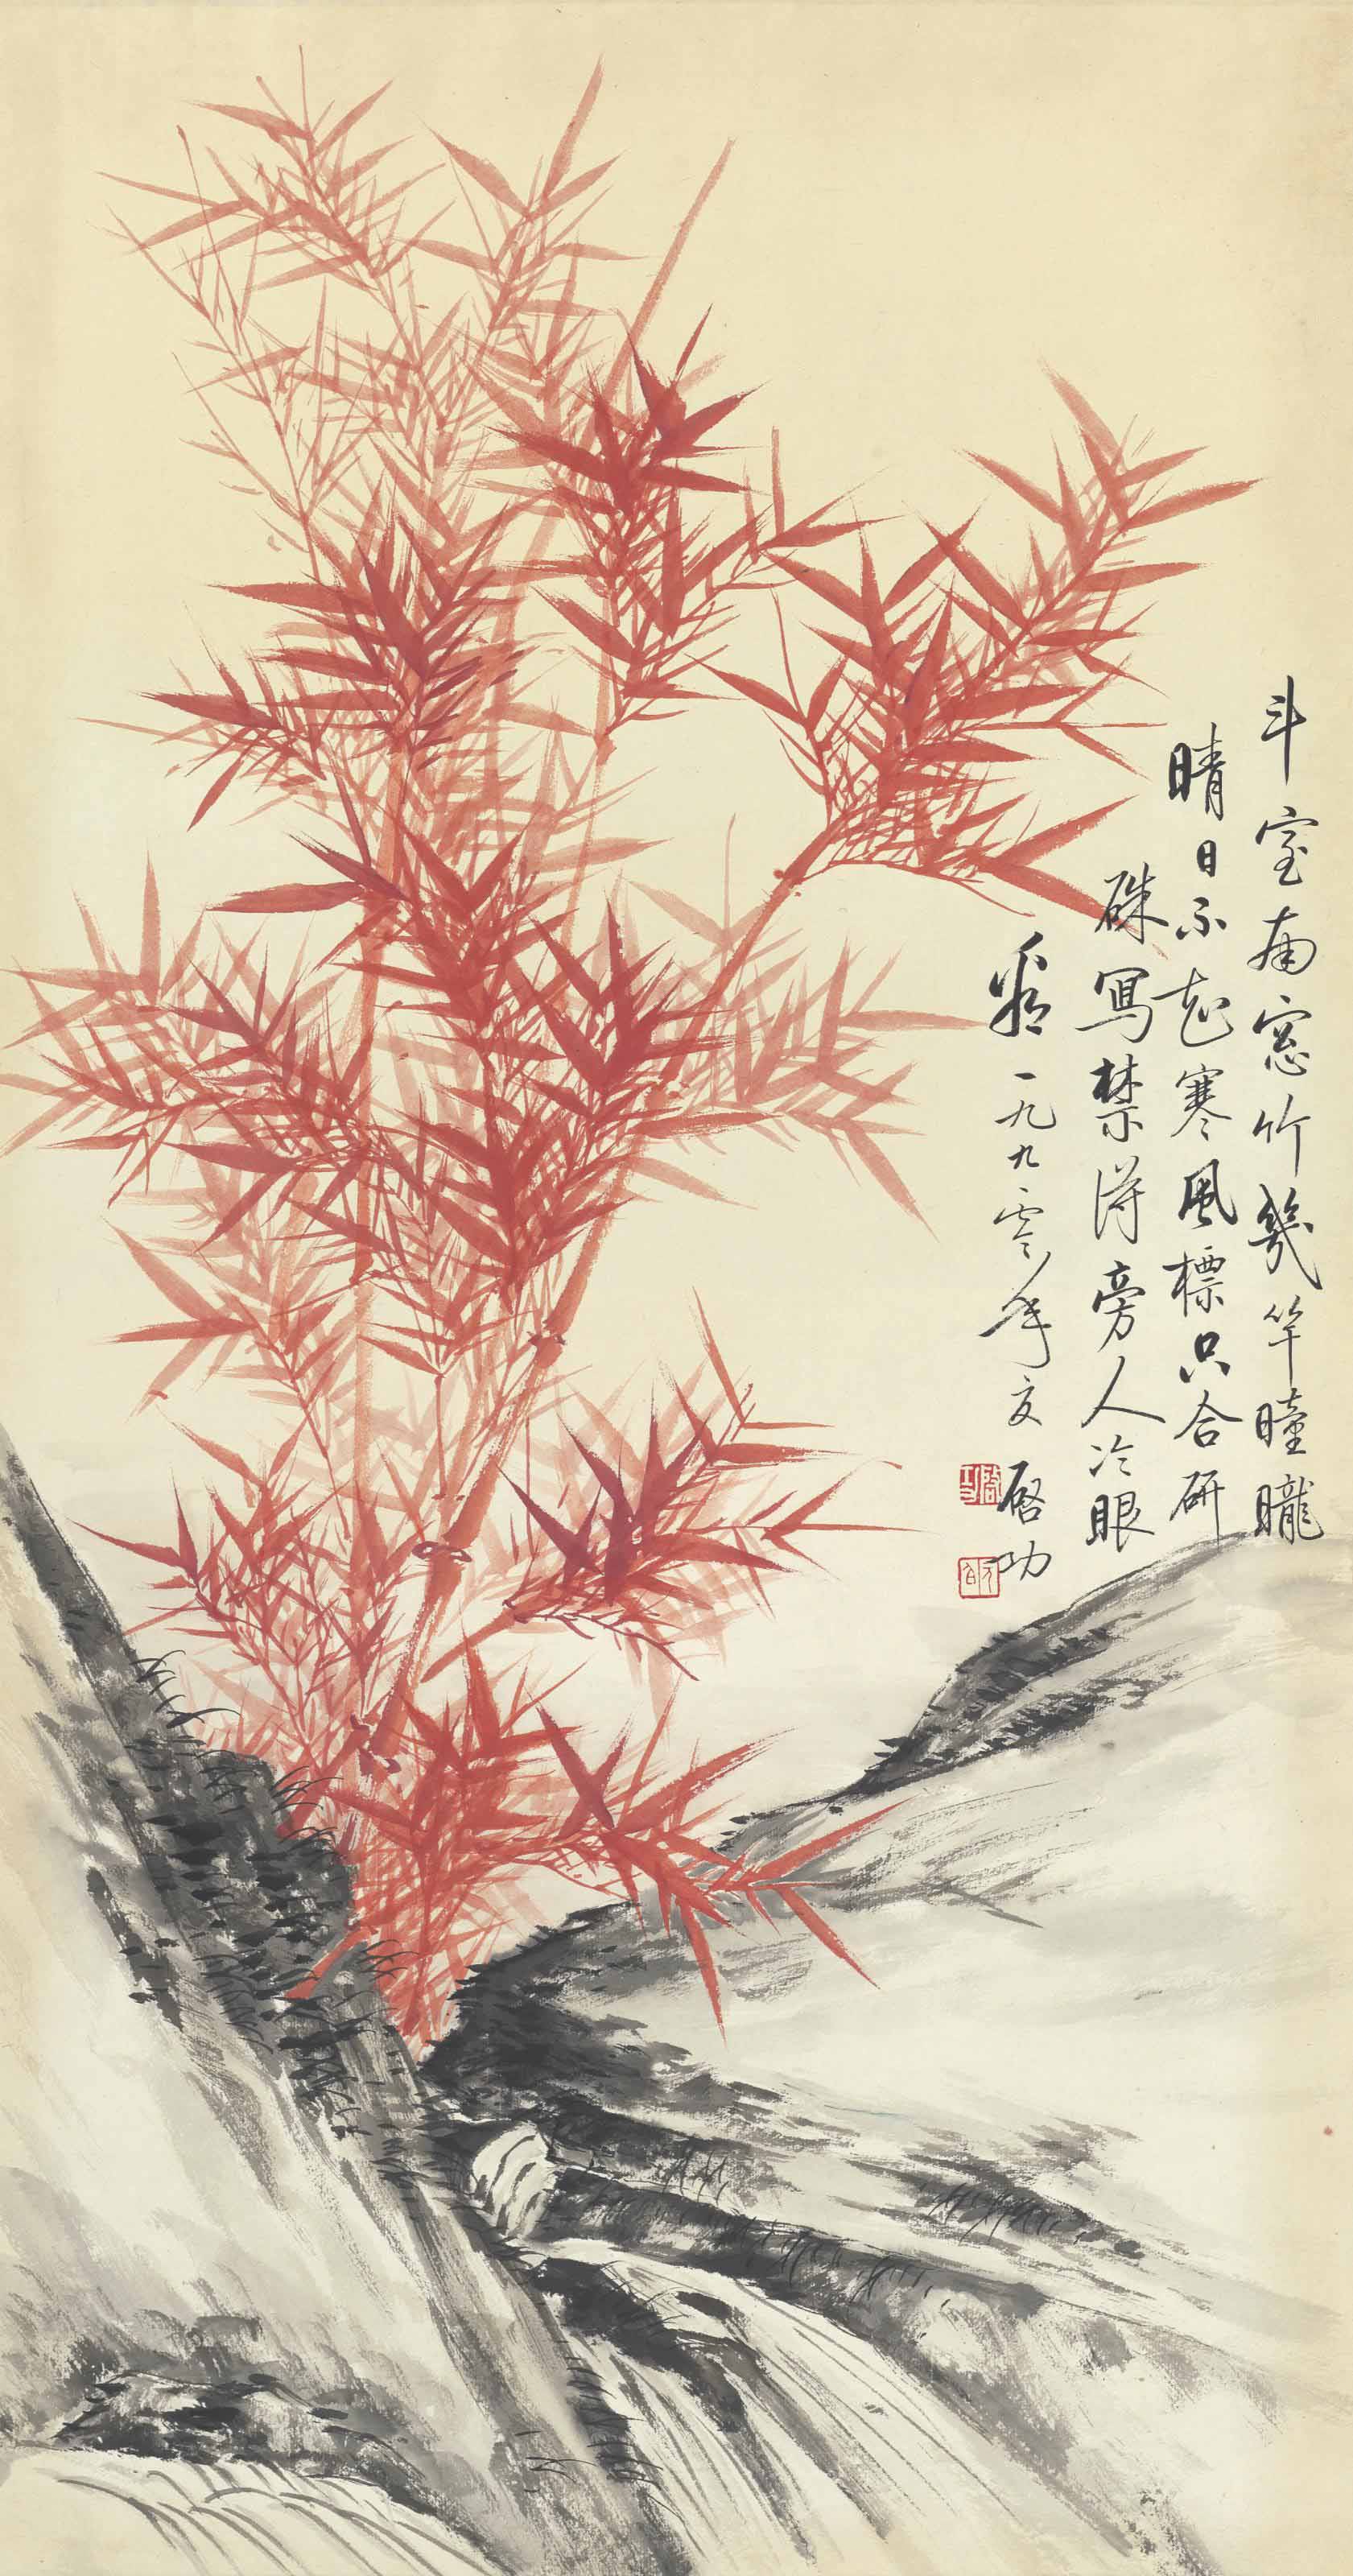 斗室南窓竹幾竿曈曨
晴日不知寒風標只合研
硃寫禁得旁人冷眼
看 一九九零年夏 啓功
啓功
元白